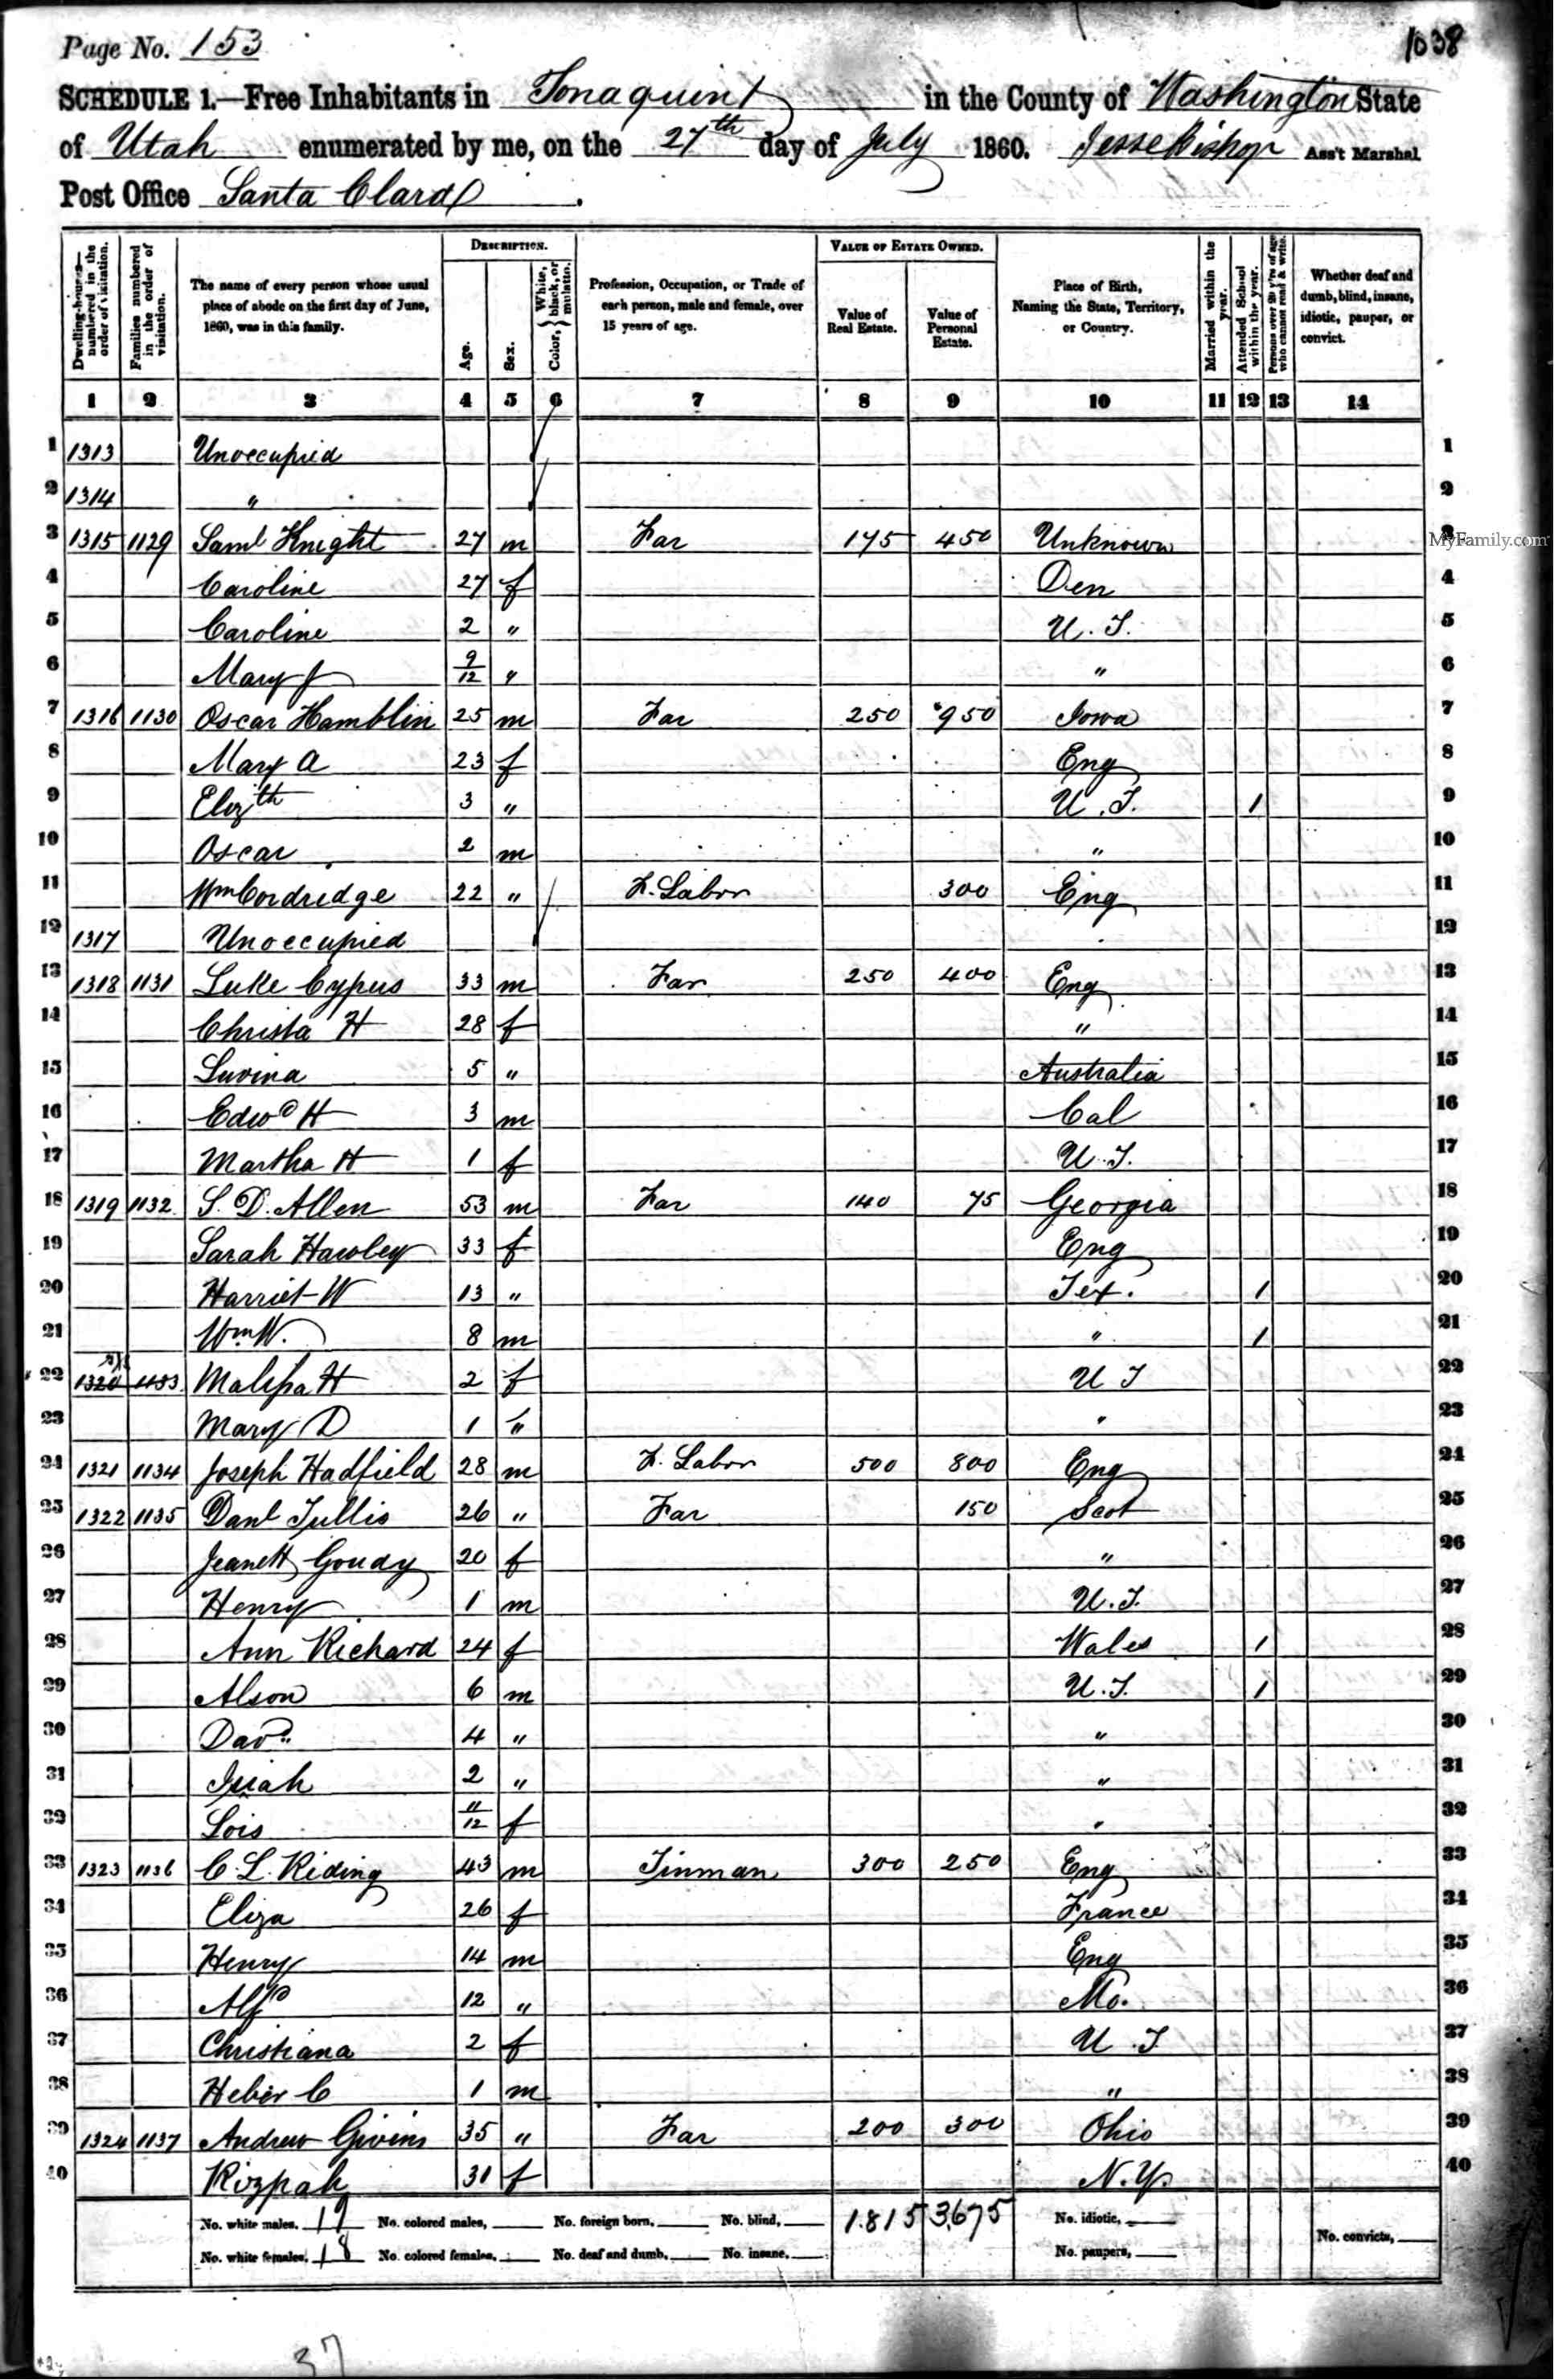 Page No. 153
1038
SCHEDULE 1.—Free Inhabitants in Tonaquint in the County of Washington State
of Utah enumerated by me, on the 27th day of July 1860. Jesse Bishop Ass't Marshal
Post Office Santa Clara.
Dwelling-houses—numbered in the order of visitation.
Families numbered in the order of visitation.
The name of every person whose usual place of abode on the first day of June, 1860, was in this family.
DESCRIPTION.
Age.
Sex.
Color, { White, black, or mulatto.
Profession, Occupation, or Trade of each person, male and female, over 15 years of age.
VALUE OF ESTATE OWNED.
Value of Real Estate.
Value of Personal Estate.
Place of Birth, Naming the State, Territory, or Country.
Married within the year.
Attended School within the year.
Persons over 20 y'rs of age who cannot read & write.
Whether deaf and dumb, blind, insane, idiotic, pauper, or convict.
1 2 3 4 5 6 7 8 9 10 11 12 13 14
1 1313 Unoccupied 1
2 1314 " 2
3 1315 1129 Saml Knight 27 m Far 175 450 Unknown 3
MyFamily.com
4 Caroline 27 f Den 4
5 Caroline 2 " U. T. 5
6 Mary J 9/12 " " 6
7 1316 1130 Oscar Hamblin 25 m Far 250 950 Iowa 7
8 Mary A 23 f Eng 8
9 Elizth 3 " U. T. 1 9
10 Oscar 2 m " 10
11 Wm Cordredge 22 " F. Labor 300 Eng 11
12 1317 Unoccupied 12
13 1318 1131 Luke Cypus 33 m Far 250 400 Eng 13
14 Christa H 28 f " 14
15 Luvina 5 " Australia 15
16 Edwd H 3 m Cal 16
17 Martha H 1 f U. T. 17
18 1319 1132 S. D. Allen 53 m Far 140 75 Georgia 18
19 Sarah Hawley 33 f Eng 19
20 Harriet W 13 " Tex. 1 20
21 Wm W. 8 m " 1 21
22 1320 1133 Malissa H 2 f U T 22
23 Mary D 1 " " 23
24 1321 1134 Joseph Hadfield 28 m F. Labor 500 800 Eng 24
25 1322 1135 Danl Tullis 26 " Far 150 Scot 25
26 Jeanett Goudy 20 f " 26
27 Henry 1 m U. T. 27
28 Ann Richard 24 f Wales 1 28
29 Alson 6 m U. T. 1 29
30 Davd 4 " " 30
31 Isiah 2 " " 31
32 Lois 11/12 f " 32
33 1323 1136 C. L. Riding 43 m Tinman 300 250 Eng 33
34 Eliza 26 f France 34
35 Henry 14 m Eng 35
36 Alfd 12 " Mo. 36
37 Christiana 2 f U. T 37
38 Heber C 1 m " 38
39 1324 1137 Andrew Givins 35 " Far 200 300 Ohio 39
40 Rizpah 31 f N. Y. 40
No. white males, 19 No. colored males, No. foreign born, No. blind, 1.815 3,675 No. idiotic,
No. white females, 18 No. colored females, No. deaf and dumb, No. insane, No. paupers, No. convicts,
37